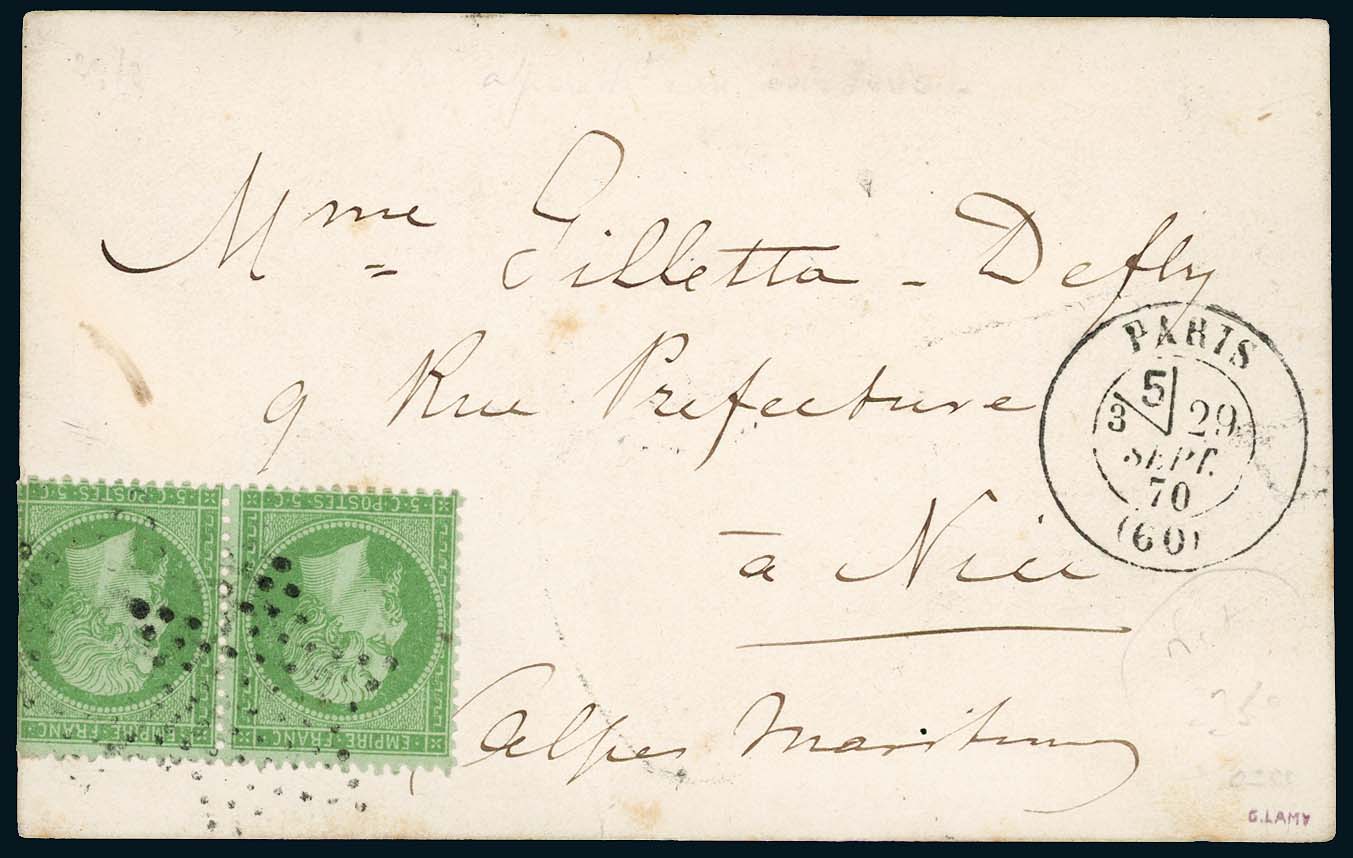 Mme Gilletta - Defly
9 Rue Prefecture
à Nice
Alpes Maritimes
PARIS
5
3
29
SEPT.
70
(60)
5·C·POSTES·5·C·
5·C·POSTES·5·C·
EMPIRE·FRANC·
EMPIRE·FRANC·
G.LAMY